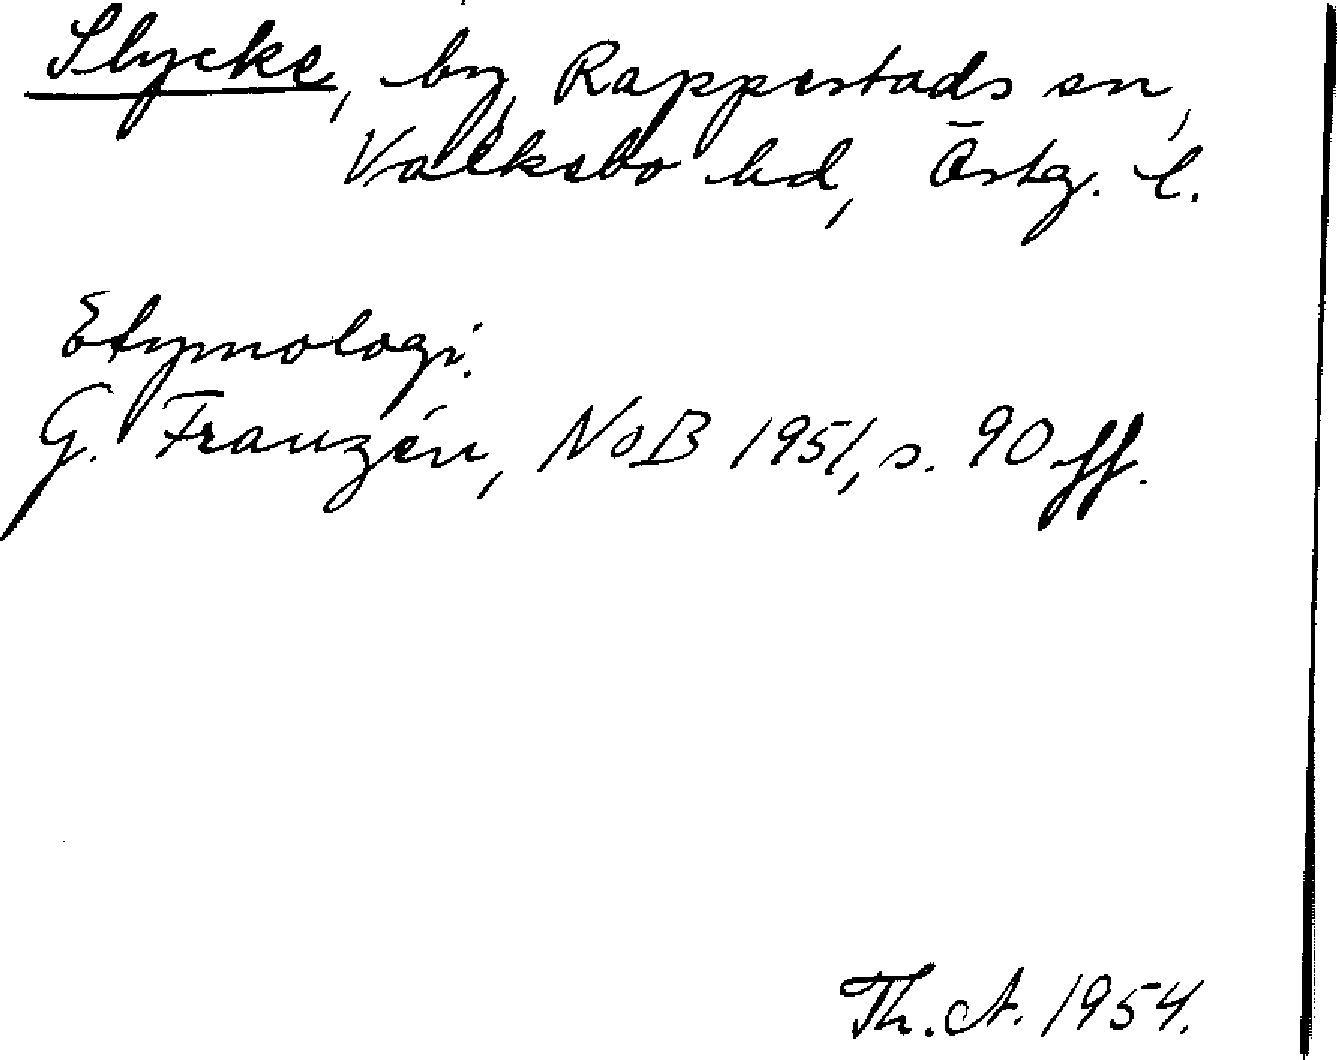 Slycke, by, Rappestads sn,
Valkebo hd, Östg. l.
Etymologi.
G. Franzén, NoB 1951, s. 90 ff.
Th. A. 1954.